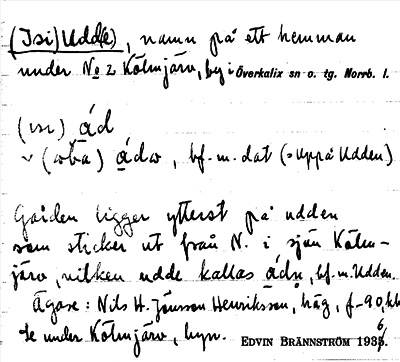 (Isi)Udd(e), namn på ett hemman
under No 2 Kölmjärv, by i Överkalix sn o. tg. Norrb. l.
(ısı) ád
~ (ɷba) ádɷ, bf. m. dat (= uppå Udden)
Gården ligger ytterst på udden
som sticker ut från N. i sjön Kölm-
järv, vilken udde kallas ádn, bf. m. Udden.
Ägare: Nils H. Jönsson Henriksson, häg, f-90,
se under Kölmjärv, byn. EDVIN BRÄNNSTRÖM 1936.